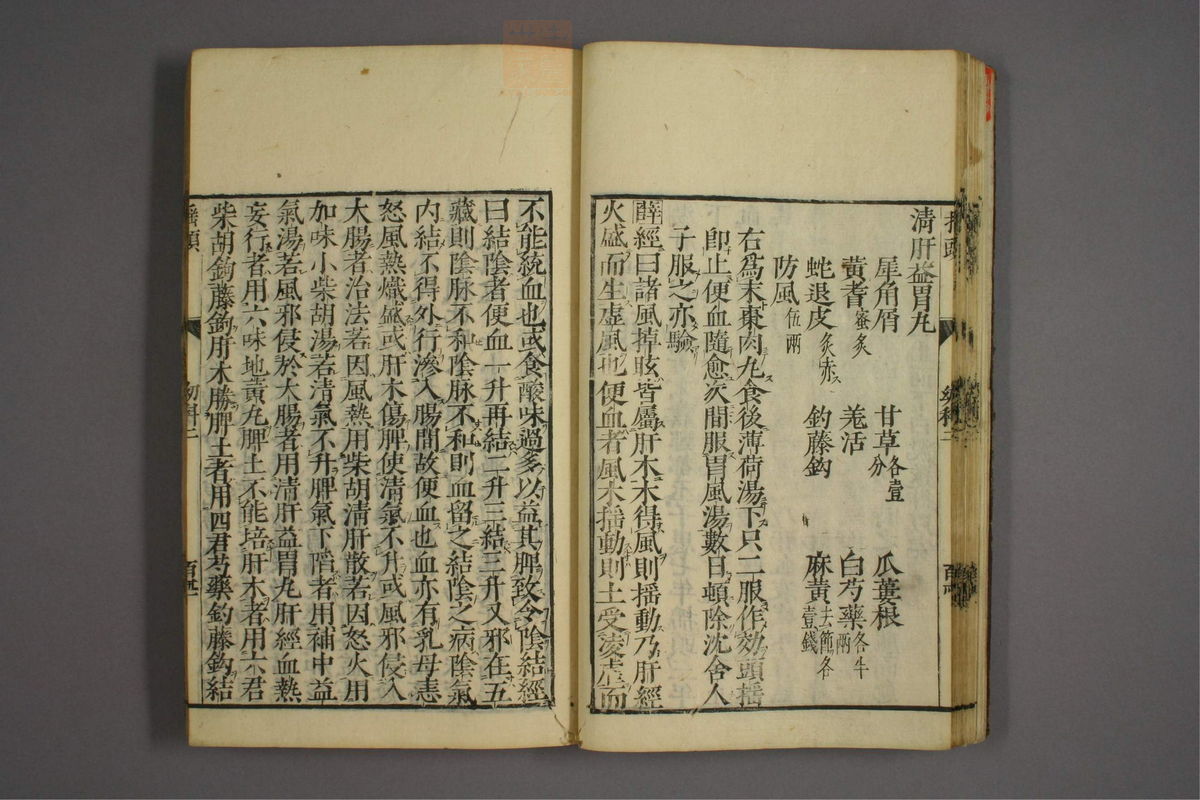 清肝益胃丸
犀角屑 甘草各壹分 瓜蔞根
黃耆蜜炙 羌活 白芍藥各半兩
蛇退皮炙赤 釣藤鈎 麻黃去節各壹錢
防風伍兩
右爲末棗肉丸食後薄荷湯下只二服作効頭搖
卽止便血隨愈次間服胃風湯數日頓除沈舍人
子服之亦驗
薛經曰諸風掉眩皆屬肝木木得風則搖動乃肝經
火盛而生虛風也便血者風木搖動則土受凌虐而
不能統血也或食酸味過多以益其脾致令陰結經
曰結陰者便血一升再結二升三結三升又邪在五
藏則陰脉不和陰脉不和則血留之結陰之病陰氣
內結不得外行滲入腸間故便血也血亦有乳母恚
怒風熱熾盛或肝木傷脾使清氣不升或風邪侵入
大腸者治法若因風熱用柴胡清肝散若因怒火用
加味小柴胡湯若清氣不升脾氣下陷者用補中益
氣湯若風邪侵於大腸者用清肝益胃丸肝經血熱
妄行者用六味地黃丸脾土不能培肝木者用六君
柴胡鈎藤鈎肝木勝脾土者用四君芍藥釣藤鈎結
搖頭 幼科二